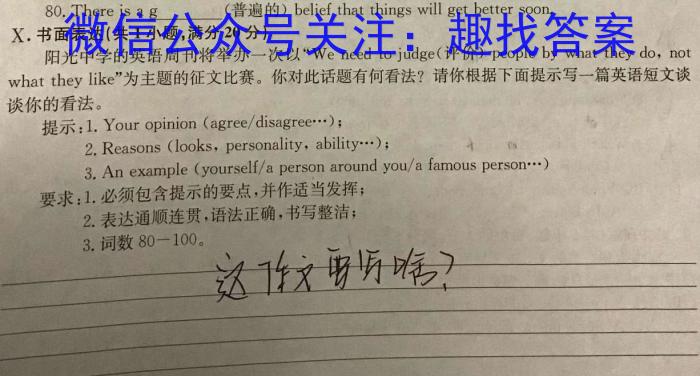 80. There is a g (普遍的) belief that things will get better soon.
微信公众号关注：趣找答案
X. 书面表达(共1小题,满分20分)
阳光中学的英语周刊将举办一次以“We need to judge(评价) people by what they do, not
what they like”为主题的征文比赛。你对此话题有何看法？请你根据下面提示写一篇英语短文谈
谈你的看法。
提示:1. Your opinion (agree/disagree…);
2. Reasons (looks, personality, ability…);
3. An example (yourself/a person around you/a famous person…)
要求:1. 必须包含提示的要点,并作适当发挥;
2. 表达通顺连贯,语法正确,书写整洁;
3. 词数 80—100。
这作文要写啥?